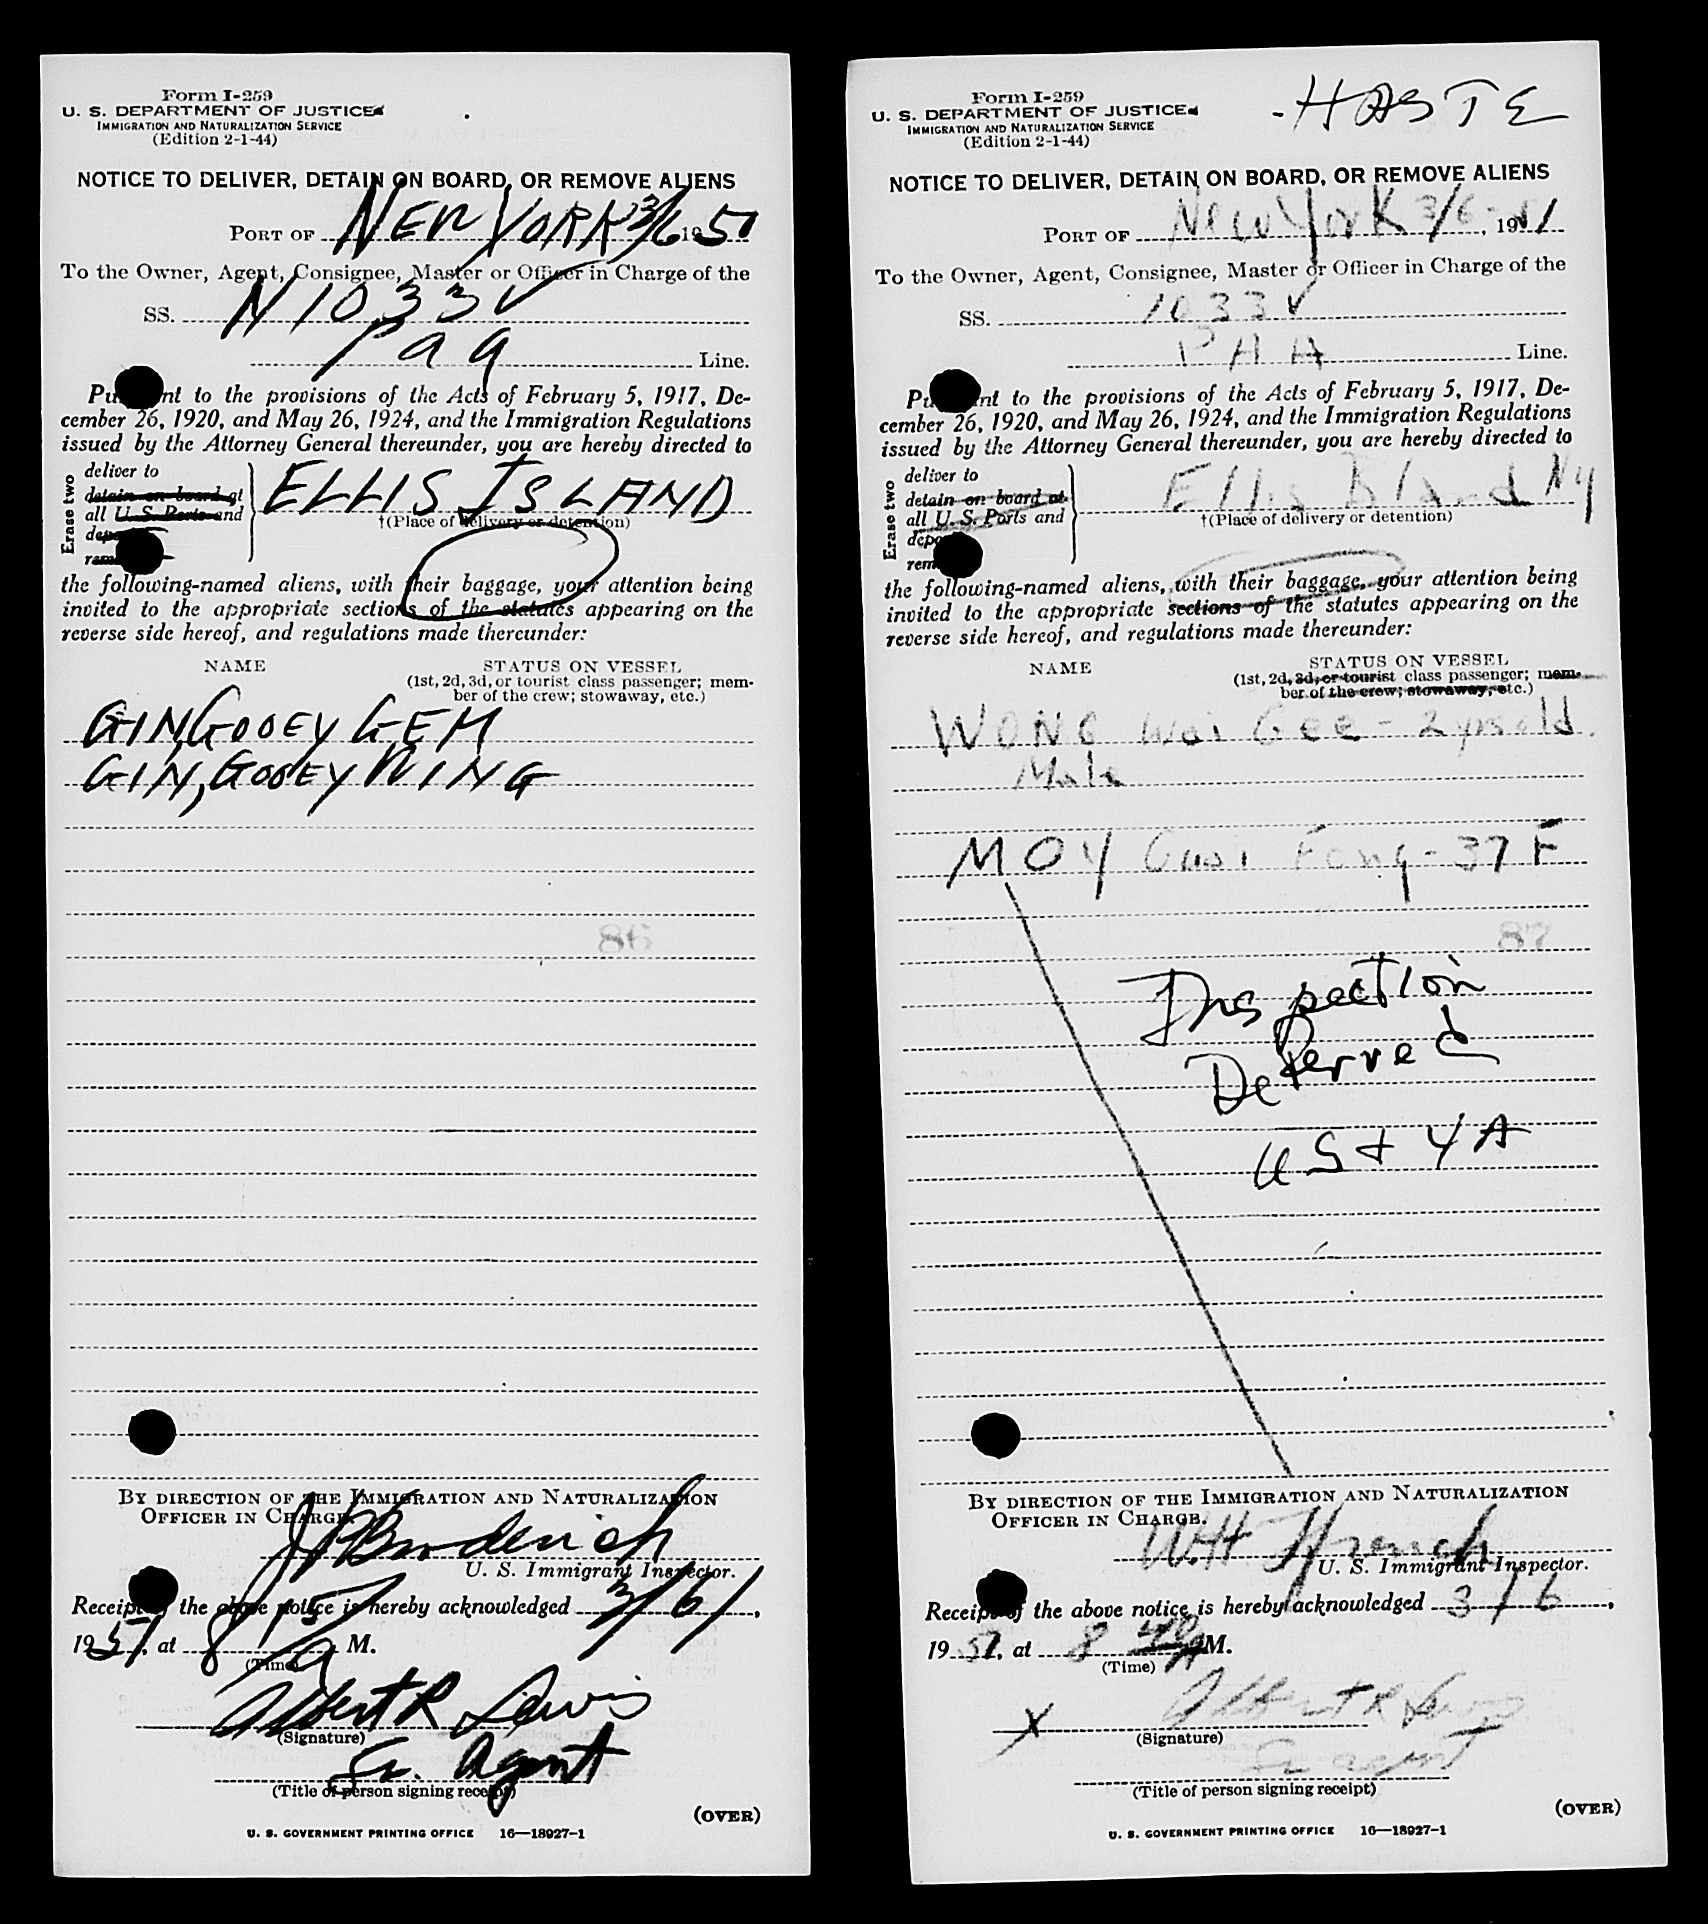 Form I-259
U. S. DEPARTMENT OF JUSTICE
IMMIGRATION AND NATURALIZATION SERVICE
(Edition 2-1-44)
NOTICE TO DELIVER, DETAIN ON BOARD, OR REMOVE ALIENS
PORT OF NEW YORK 3/6 19 51
To the Owner, Agent, Consignee, Master or Officer in Charge of the
SS. N 1033V
Paa Line.
Pu nt to the provisions of the Acts of February 5, 1917, De-
cember 26, 1920, and May 26, 1924, and the Immigration Regulations
issued by the Attorney General thereunder, you are hereby directed to
Erase two
deliver to
detain on board at
all U. S. Ports and
depo
rem
ELLIS ISLAND
†(Place of delivery or detention)
the following-named aliens, with their baggage, your attention being
invited to the appropriate sections of the statutes appearing on the
reverse side hereof, and regulations made thereunder:
NAME
STATUS ON VESSEL
(1st, 2d, 3d, or tourist class passenger; mem-
ber of the crew; stowaway, etc.)
GIN, GOOEY GEM
GIN, GOOEY WING
86
BY DIRECTION OF THE IMMIGRATION AND NATURALIZATION
OFFICER IN CHARGE.
U. S. Immigrant Inspector.
Receipt of the above notice is hereby acknowledged 3/6/,
1951, at 8 15 A M.
(Time)
Albert R Lewis
(Signature)
Sr. Agent
(Title of person signing receipt)
(OVER)
U. S. GOVERNMENT PRINTING OFFICE 16—18927-1
HASTE
Form I-259
U. S. DEPARTMENT OF JUSTICE
IMMIGRATION AND NATURALIZATION SERVICE
(Edition 2-1-44)
NOTICE TO DELIVER, DETAIN ON BOARD, OR REMOVE ALIENS
PORT OF New York 3/6, 1951
To the Owner, Agent, Consignee, Master or Officer in Charge of the
SS. 1033V
PAA Line.
Pu nt to the provisions of the Acts of February 5, 1917, De-
cember 26, 1920, and May 26, 1924, and the Immigration Regulations
issued by the Attorney General thereunder, you are hereby directed to
Erase two
deliver to
detain on board at
all U. S. Ports and
depo
rem
Ellis Island NY
†(Place of delivery or detention)
the following-named aliens, with their baggage, your attention being
invited to the appropriate sections of the statutes appearing on the
reverse side hereof, and regulations made thereunder:
NAME
STATUS ON VESSEL
(1st, 2d, 3d, or tourist class passenger; mem-
ber of the crew; stowaway, etc.)
WONG Wai Gee - 2 yrs old.
Male
MOY Guai Fong - 37 F
87
Inspection
Deferred
US + YA
BY DIRECTION OF THE IMMIGRATION AND NATURALIZATION
OFFICER IN CHARGE.
U. S. Immigrant Inspector.
Receipt of the above notice is hereby acknowledged 3/6,
1951, at 8 40 A M.
(Time)
X Albert R Lewis
(Signature)
Sr agent
(Title of person signing receipt)
(OVER)
U. S. GOVERNMENT PRINTING OFFICE 16—18927-1